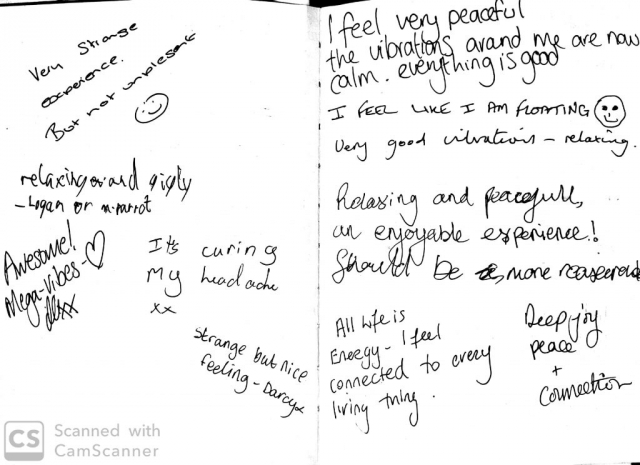 Very Strange
experience.
But not unplesent
relaxing and gigly
- Logan or
Awesome!
Mega-vibes -
xx
Its curing
My headache
xx
Strange but nice
feeling - Darcy x
I feel very peaceful
the vibrations arand me are now
calm. everything is good
I FEEL LIKE I AM FLOATING
Very good vibrations - relaxing.
Relaxing and peacefull,
an enjoyable experience!
Should be more
All life is
Energy - I feel
connected to every
living thing.
Deep joy
peace
+
Connection
CS Scanned with
CamScanner